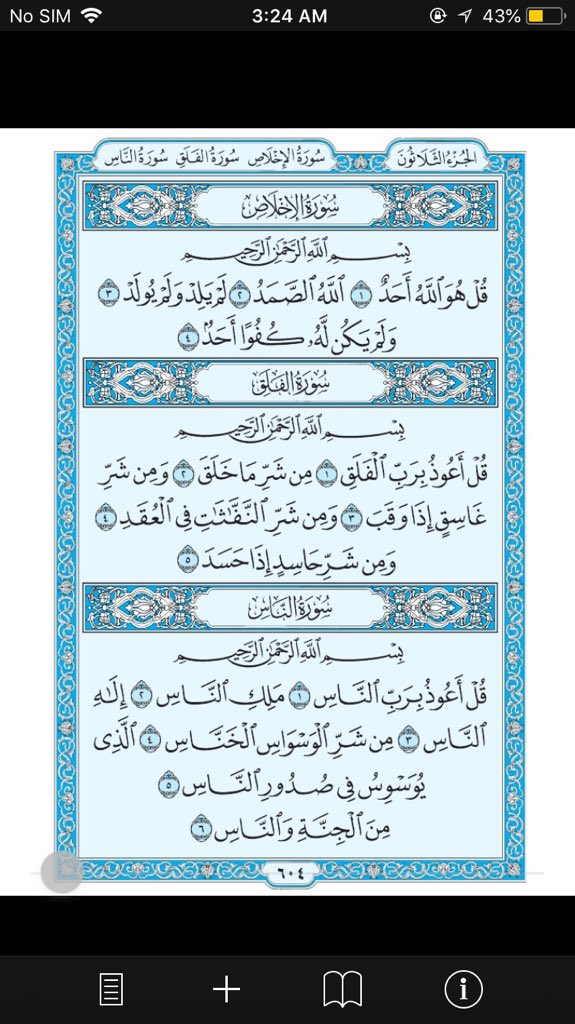 No SIM 3:24 AM 43%
الجزء الثلاثون سورة الإخلاص سورة الفلق سورة الناس
سُورَةُ الإِخْلَاصِ
بِسْمِ ٱللَّهِ ٱلرَّحْمَٰنِ ٱلرَّحِيمِ
قُلْ هُوَ ٱللَّهُ أَحَدٌ ١ ٱللَّهُ ٱلصَّمَدُ ٢ لَمْ يَلِدْ وَلَمْ يُولَدْ ٣
وَلَمْ يَكُن لَّهُۥ كُفُوًا أَحَدٌۢ ٤
سُورَةُ الفَلَقِ
بِسْمِ ٱللَّهِ ٱلرَّحْمَٰنِ ٱلرَّحِيمِ
قُلْ أَعُوذُ بِرَبِّ ٱلْفَلَقِ ١ مِن شَرِّ مَا خَلَقَ ٢ وَمِن شَرِّ
غَاسِقٍ إِذَا وَقَبَ ٣ وَمِن شَرِّ ٱلنَّفَّٰثَٰتِ فِى ٱلْعُقَدِ ٤
وَمِن شَرِّ حَاسِدٍ إِذَا حَسَدَ ٥
سُورَةُ النَّاسِ
بِسْمِ ٱللَّهِ ٱلرَّحْمَٰنِ ٱلرَّحِيمِ
قُلْ أَعُوذُ بِرَبِّ ٱلنَّاسِ ١ مَلِكِ ٱلنَّاسِ ٢ إِلَٰهِ
ٱلنَّاسِ ٣ مِن شَرِّ ٱلْوَسْوَاسِ ٱلْخَنَّاسِ ٤ ٱلَّذِى
يُوَسْوِسُ فِى صُدُورِ ٱلنَّاسِ ٥
مِنَ ٱلْجِنَّةِ وَٱلنَّاسِ ٦
٦٠٤